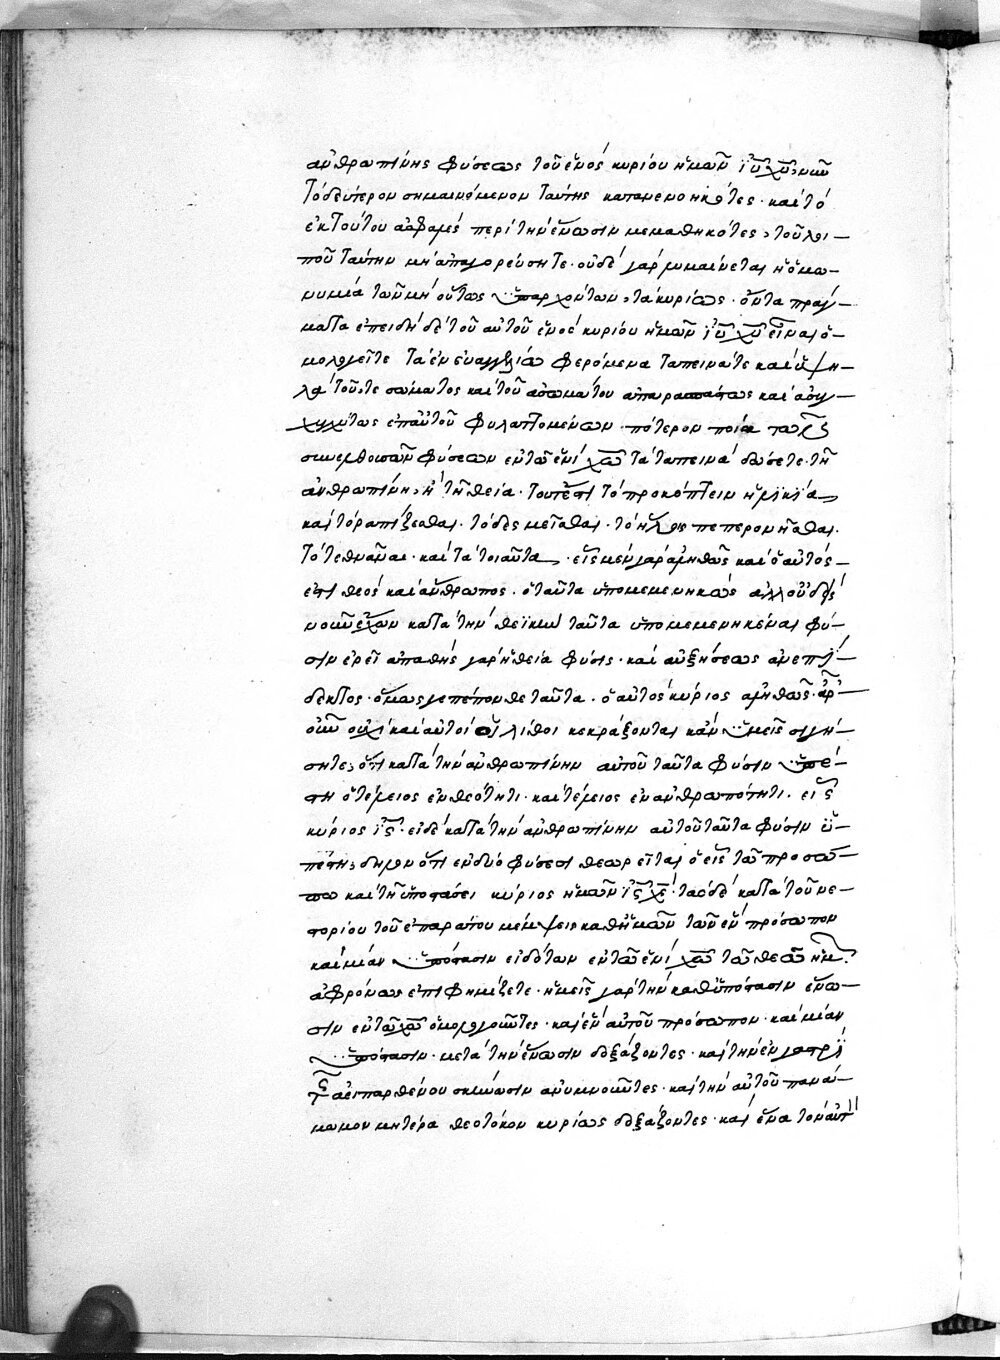 ἀνθρωπίνης φύσεως τοῦ ἑνὸς κυρίου ἡμῶν ἰῦ χῦ· νῦν
τὸ δεύτερον σημαινόμενον ταύτης κατανενοηκότες· καὶ τὸ
ἐκ τούτου ἀσφαλὲς περὶ τὴν ἕνωσιν μεμαθηκότες, τοῦ λοι-
ποῦ ταύτην μὴ ἀπαγορεύσητε· οὐδὲ γὰρ λυμαίνεται ἡ ὁμω-
νυμία τῶν μὴ οὕτως ὑπαρχόντων, τὰ κυρίως ὄντα πράγ-
ματα ἐπειδὴ δὲ τοῦ αὐτοῦ ἑνὸς κυρίου ἡμῶν ἰῦ χῦ εἶναι ὁ-
μολογεῖτε τὰ ἐν εὐαγγελίοις φερόμενα ταπεινά τε καὶ ὑψη-
λὰ τοῦ τε σώματος καὶ τοῦ ἀσωμάτου ἀπαραποιήτως καὶ ἀσυγ-
χύτως ἐπ' αὐτοῦ φυλαττομένων· πότερον ποίᾳ τῶν
συνελθουσῶν φύσεων ἐν τῶ ἑνὶ χῶ τὰ ταπεινὰ δώσετε· τῆ
ἀνθρωπίνη, ἢ τῆ θεία· τουτέστι τὸ προκόπτειν ἡλικία,
καὶ τὸ ῥαπίζεσθαι· τὸ δεσμεῖσθαι· τὸ ἥλοις πεπερονῆσθαι·
τό τε θνᾶναι· καὶ τὰ τοιαῦτα· εἷς μὲν γὰρ ἀληθῶς καὶ ὁ αὐτός
ἐστι θεὸς καὶ ἄνθρωπος· ὁ ταῦτα ὑπομεμενηκὼς ἀλλ' οὐδεὶς
νοῦν ἔχων κατὰ τὴν θεϊκὴν ταῦτα ὑπομεμενηκέναι φύ-
σιν ἐρεῖ ἀπαθὴς γὰρ ἡ θεία φύσις· καὶ αὐξήσεως ἀνεπί-
δεκτος· ὅμως γε πέπονθε ταῦτα· ὁ αὐτὸς κύριος ἀληθῶς· ἆρ'
οὖν οὐχὶ καὶ αὐτοὶ οἱ λίθοι κεκράξονται κἂν ὑμεῖς σιγή-
σητε, ὅτι κατὰ τὴν ἀνθρωπίνην αὐτοῦ ταῦτα φύσιν ὑπέ-
στη ὁ τέλειος ἐν θεότητι· καὶ τέλειος ἐν ἀνθρωπότητι· εἷς
κύριος ἰς· εἰ δὲ κατὰ τὴν ἀνθρωπίνην αὐτοῦ ταῦτα φύσιν ὑ-
πέστη, δῆλον ὅτι ἐν δύο φύσεσι θεωρεῖται ὁ εἷς τῶ προσώ-
πω καὶ τῆ ὑποστάσει κύριος ἡμῶν ἰς χς· τὰς δὲ κατὰ τοῦ νε-
στορίου τοῦ ἐπαράτου μέμψεις καθ' ἡμῶν τῶν ἓν πρόσωπον
καὶ μίαν ὑπόστασιν εἰδότων ἐν τῶ ἑνὶ χῶ τῶ θεῶ ἡμ
ἀφρόνως ἐπιφημίζετε· ἡμεῖς γὰρ τὴν καθ' ὑπόστασιν ἕνω-
σιν ἐν τῶ χῶ ὁμολογοῦντες· καὶ ἓν αὐτοῦ πρόσωπον· καὶ μίαν
ὑπόστασιν· μετὰ τὴν ἕνωσιν δοξάζοντες· καὶ τὴν ἐν γαστρὶ
τῆς ἀειπαρθένου σκήνωσιν ἀνυμνοῦντες· καὶ τὴν αὐτοῦ πανά-
μωμον μητέρα θεοτόκον κυρίως δοξάζοντες· καὶ ἕνα τὸν αὐτ